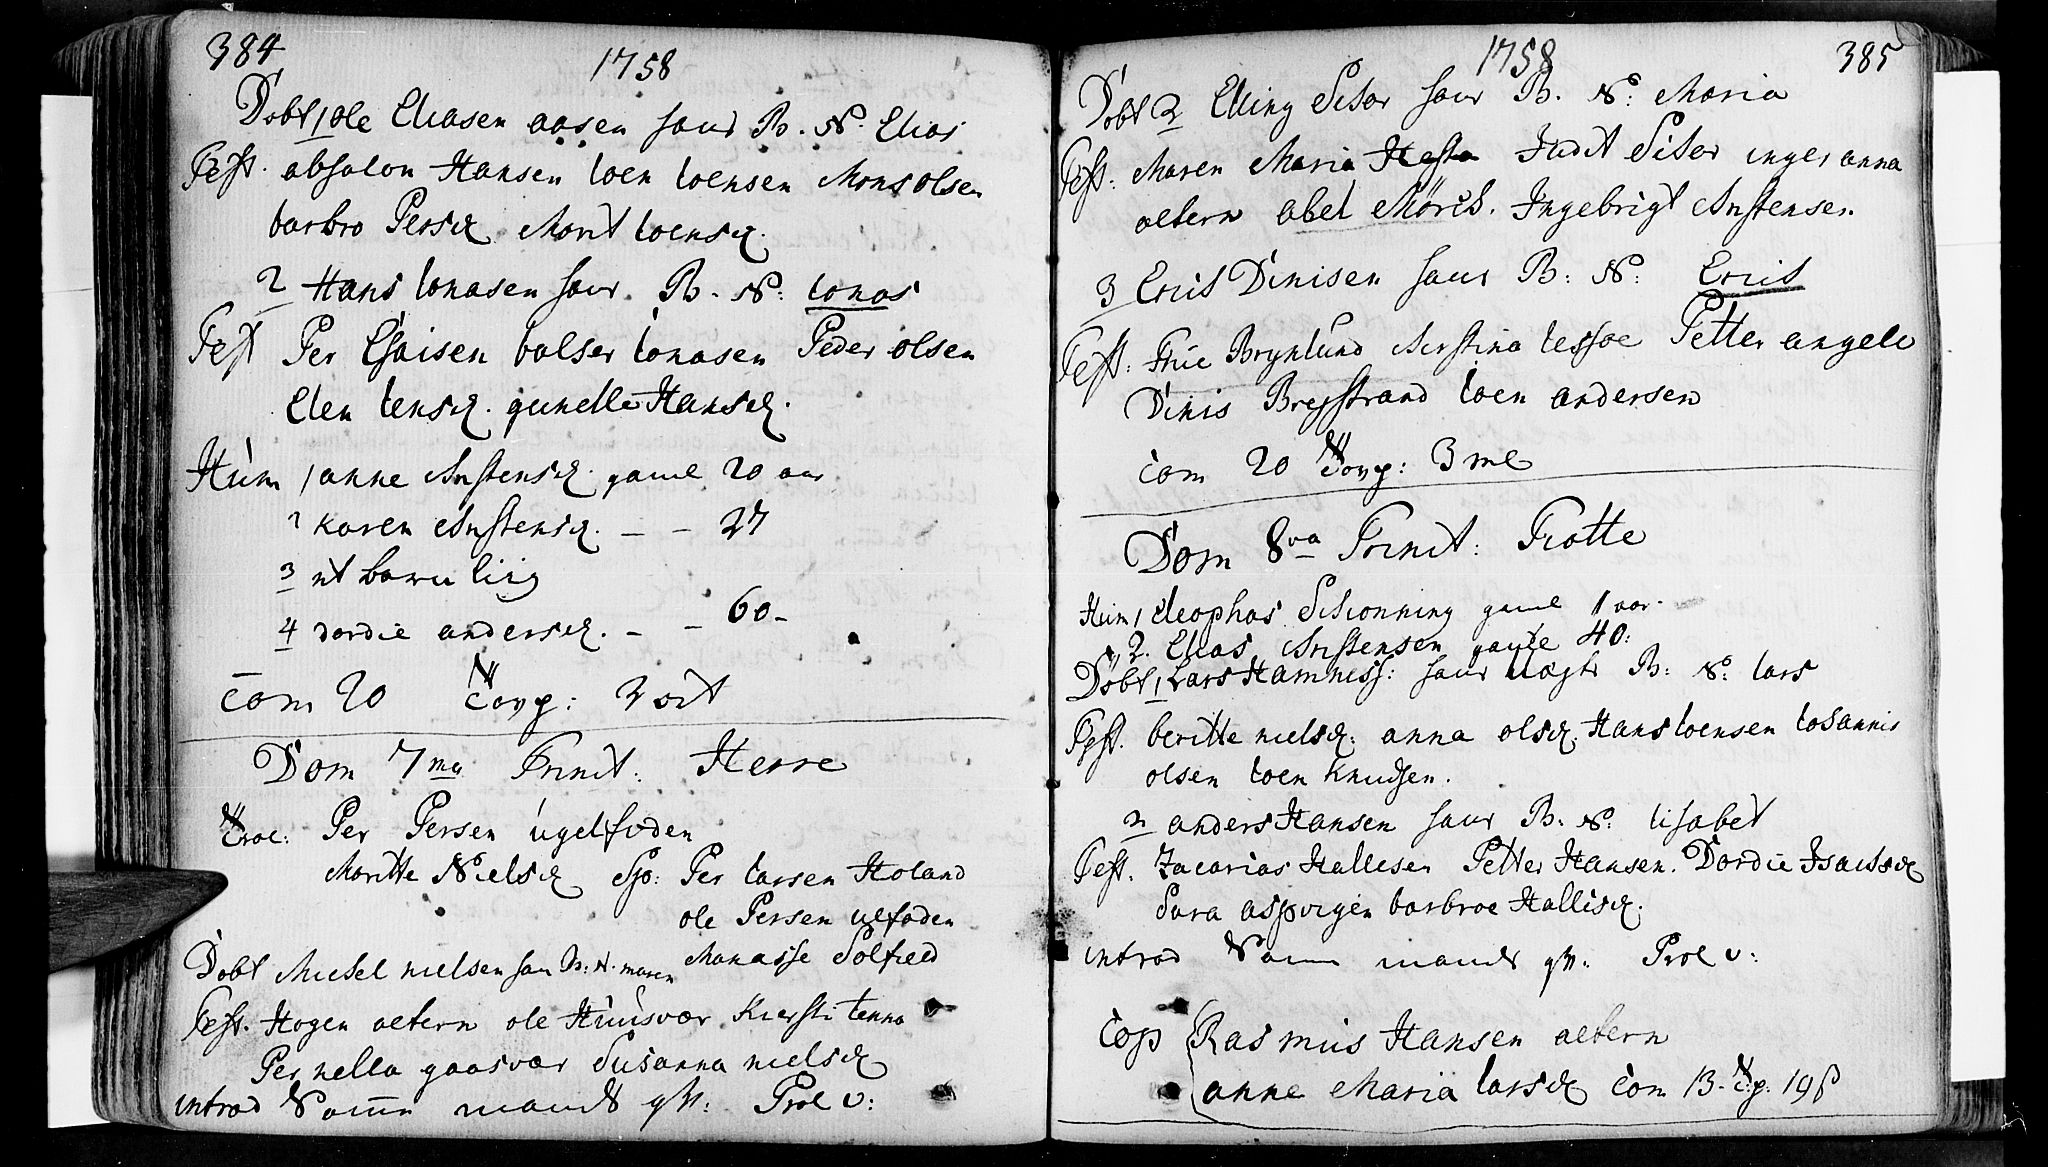 384
1758
Døbt 1 ole Eliasen aasen saur B. N. Elias
Test. absalon Hansen loen loensen Mons olsen
barbro Persd. Marit loensd.
2 Hans lonasen saur B. N: lonas
Test Per Esaisen balser lonasen Peder olsen
Elen lensd. gunelle Hansd.
Hum 1 anne Anstensd. gaml 20 aar
2 Karen Anstensd. – – 27
3 et barn liig
4 dordie andersd. – – 60 –
Com 20 Conf: 3 ort
Dom 7ma Trinit: Herrø
Trol: Per Persen ugelfoden
Maritte Nielsd Spo: Per larsen Høland
ole Persen uelfoden
Manasse Solfield
Døbt Mickel nielsen saur B: N. maren
Test. Hogen altern ole Huusvær Kiersti tenna
Pernella gaasvær Susanna nielsd
introd Samme mands q.
1758
385
Døbt 2 Elling Setor saur B. N: Maria
Test: Maren Maria Judit Setor inger anna
altern abel Mörch. Ingebrigt Anstensen
3 Erich Dinisen saur B: N: Erich
Test: Frue Brynlund Kirstina lessoe Petter angell
Dinis Breystrand loen andersen
Com 20 3 mk
Dom 8va Trinit: Trotte
Hum 1 Cleophas Schonning gaml 1 aar
2. Elias Anstensen gamle 40:
Døbt 1 Lars Hamness: saur B: N: lars
Test. beritte nielsd. anna olsd. Hans loensen lohannis
olsen loen Knudsen.
2 anders Hansen saur B. N: lisabet
Test. Zacarias Hallesen Petter Hansen. Dordie Isachsd
Sara aspvigen barbroe Hallisd.
introd mands q.
Cop Rasmus Hansen altern
anne Maria larsd Com 13.